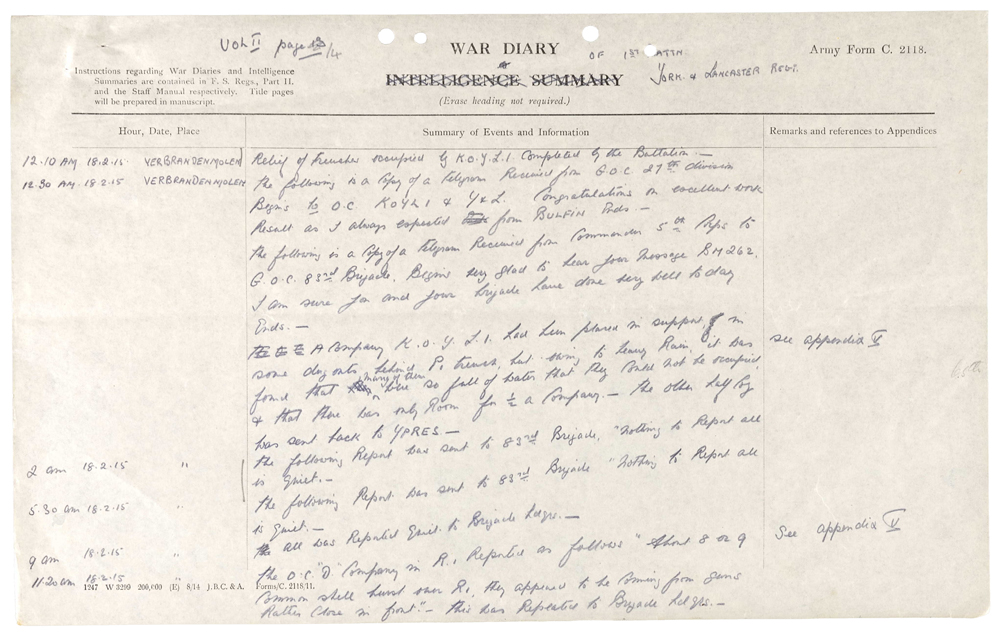 VOL II page 13/14
WAR DIARY
OF 1ST BATTN
Army Form C. 2118.
INTELLIGENCE SUMMARY
YORK & LANCASTER REGT.
(Erase heading not required.)
Instructions regarding War Diaries and Intelligence
Summaries are contained in F. S. Regs., Part II.
and the Staff Manual respectively. Title pages
will be prepared in manuscript.
Hour, Date, Place
Summary of Events and Information
Remarks and references to Appendices
12.10 AM 18.2.15 VERBRANDENMOLEN Relief of trenches occupied by K.O.Y.L.I. Completed by the Battalion.—
12.30 AM 18.2.15 VERBRANDENMOLEN the following is a Copy of a telegram Received from G.O.C. 27th division
Begins to O.C. KOYLI & Y&L. Congratulations on excellent work
Result as I always expected from BULFIN Ends —
the following is a Copy of a telegram Received from Commander 5th Corps to
G.O.C. 83rd Brigade. Begins very glad to hear your Message BM262.
I am sure you and your brigade have done very well to day
Ends. —
A Company K.O.Y.L.I. had been placed in support, in see appendix V
some dug outs behind P. trench, but owing to heavy Rain, it was
found that many of them were so full of water that they could not be occupied
& that there was only Room for ½ a Company. — the other half Coy
was sent back to YPRES. —
2 am 18.2.15 " the following Report was sent to 83rd Brigade, "Nothing to Report all
is quiet. —
5.30 am 18.2.15 " the following Report was sent to 83rd Brigade "Nothing to Report all
is quiet. —
9 am 18.2.15 " all was Reported quiet to Brigade hdqrs. — See appendix V
11.20 am 18.2.15 " the O.C. "D" Company in R.1 Reported as follows "About 8 or 9
Common shell burst over R.1, they appeared to be coming from guns
Rather close in front" — this was Repeated to Brigade hdqrs. —
1247 W 3299 200,000 (E) 8/14 J.B.C. & A. Forms/C. 2118/11.